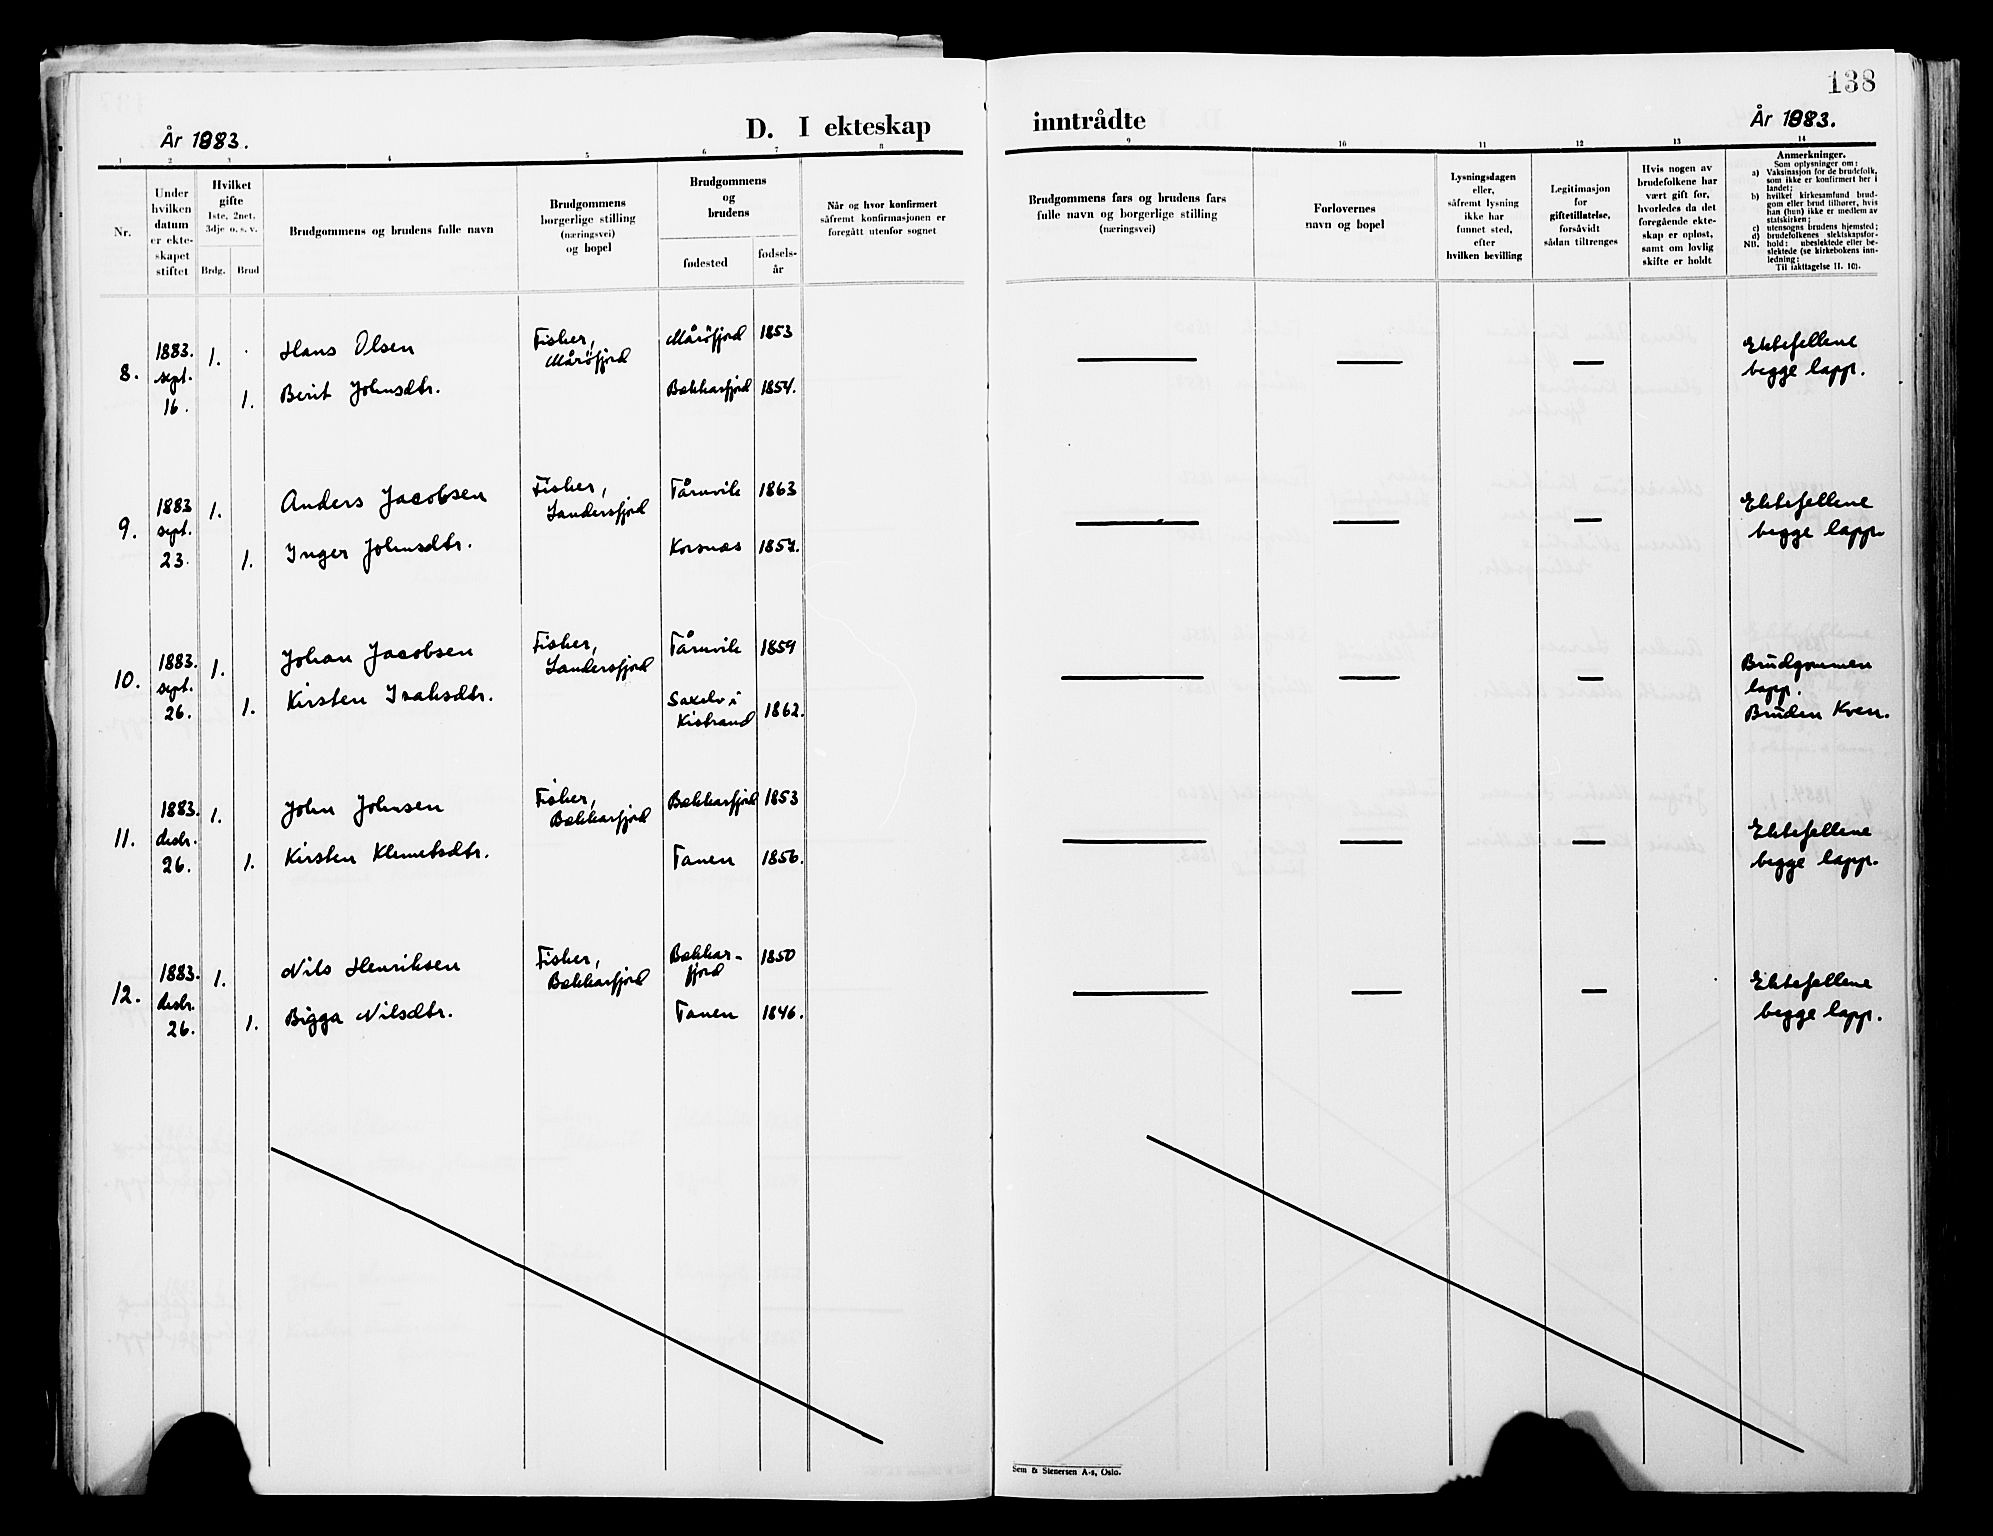 138
År 1883.
D. I ekteskap inntrådte
År 1883.
1 2 3 4 5 6 7 8 9 10 11 12 13 14
Nr.
Under
hvilken
datum
er ekte-
skapet
stiftet
Hvilket
gifte
1ste, 2net,
3dje o. s. v.
Brdg. Brud
Brudgommens og brudens fulle navn
Brudgommens
borgerlige stilling
(næringsvei)
og bopel
Brudgommens
og
brudens
fødested
fødsels-
år
Når og hvor konfirmert
såfremt konfirmasjonen er
foregått utenfor sognet
Brudgommens fars og brudens fars
fulle navn og borgerlige stilling
(næringsvei)
Forlovernes
navn og bopel
Lysningsdagen
eller,
såfremt lysning
ikke har
funnet sted,
efter
hvilken bevilling
Legitimasjon
for
giftetillatelse,
forsåvidt
sådan tiltrenges
Hvis nogen av
brudefolkene har
vært gift før,
hvorledes da det
foregående ekte-
skap er opløst,
samt om lovlig
skifte er holdt
Anmerkninger.
Som oplysninger om:
a) Vaksinasjon for de brudefolk,
som ikke er konfirmert her i
landet;
b) hvilket kirkesamfund brud-
gom eller brud tilhører, hvis
han (hun) ikke er medlem av
statskirken;
c) utensogns brudens hjemsted;
d) brudefolkenes slektskapsfor-
NB. hold: ubeslektede eller be-
slektede (se kirkebokens inn-
ledning:
Til iakttagelse II. 10).
8.
1883.
sept.
16.
1. Hans Olsen
Fisher,
Måröfjord
Måröfjord 1853
1. Berit Johnsdtr.
Bekkarfjord 1854.
Ektefellene
begge lapp.
9.
1883
sept.
23.
1. Anders Jacobsen
Fisher,
Landersfjord
Tårnvik 1863
1. Inger Johnsdtr.
Korsnæs 1857.
Ektefellene
begge lapp.
10.
1883.
sept.
26.
1. Johan Jacobsen
Fisher,
Landersfjord
Tårnvik 1859
1. Kirsten Isaksdtr.
Saxelv i
Kistrand 1862.
Brudgommen
lapp.
Bruden Kven.
11.
1883.
desbr.
26.
1. John Johnsen
Fisher,
Bekkarfjord
Bekkarfjord 1853
1. Kirsten Klemetsdtr.
Tanen 1856.
Ektefellene
begge lapp.
12.
1883.
desbr.
26.
1. Nils Henriksen
Fisher,
Bekkarfjord
Bekkar-
fjord 1850
1. Bigga Nilsdtr.
Tanen 1846.
Ektefellene
begge lapp.
Sem & Stenersen A-s, Oslo.